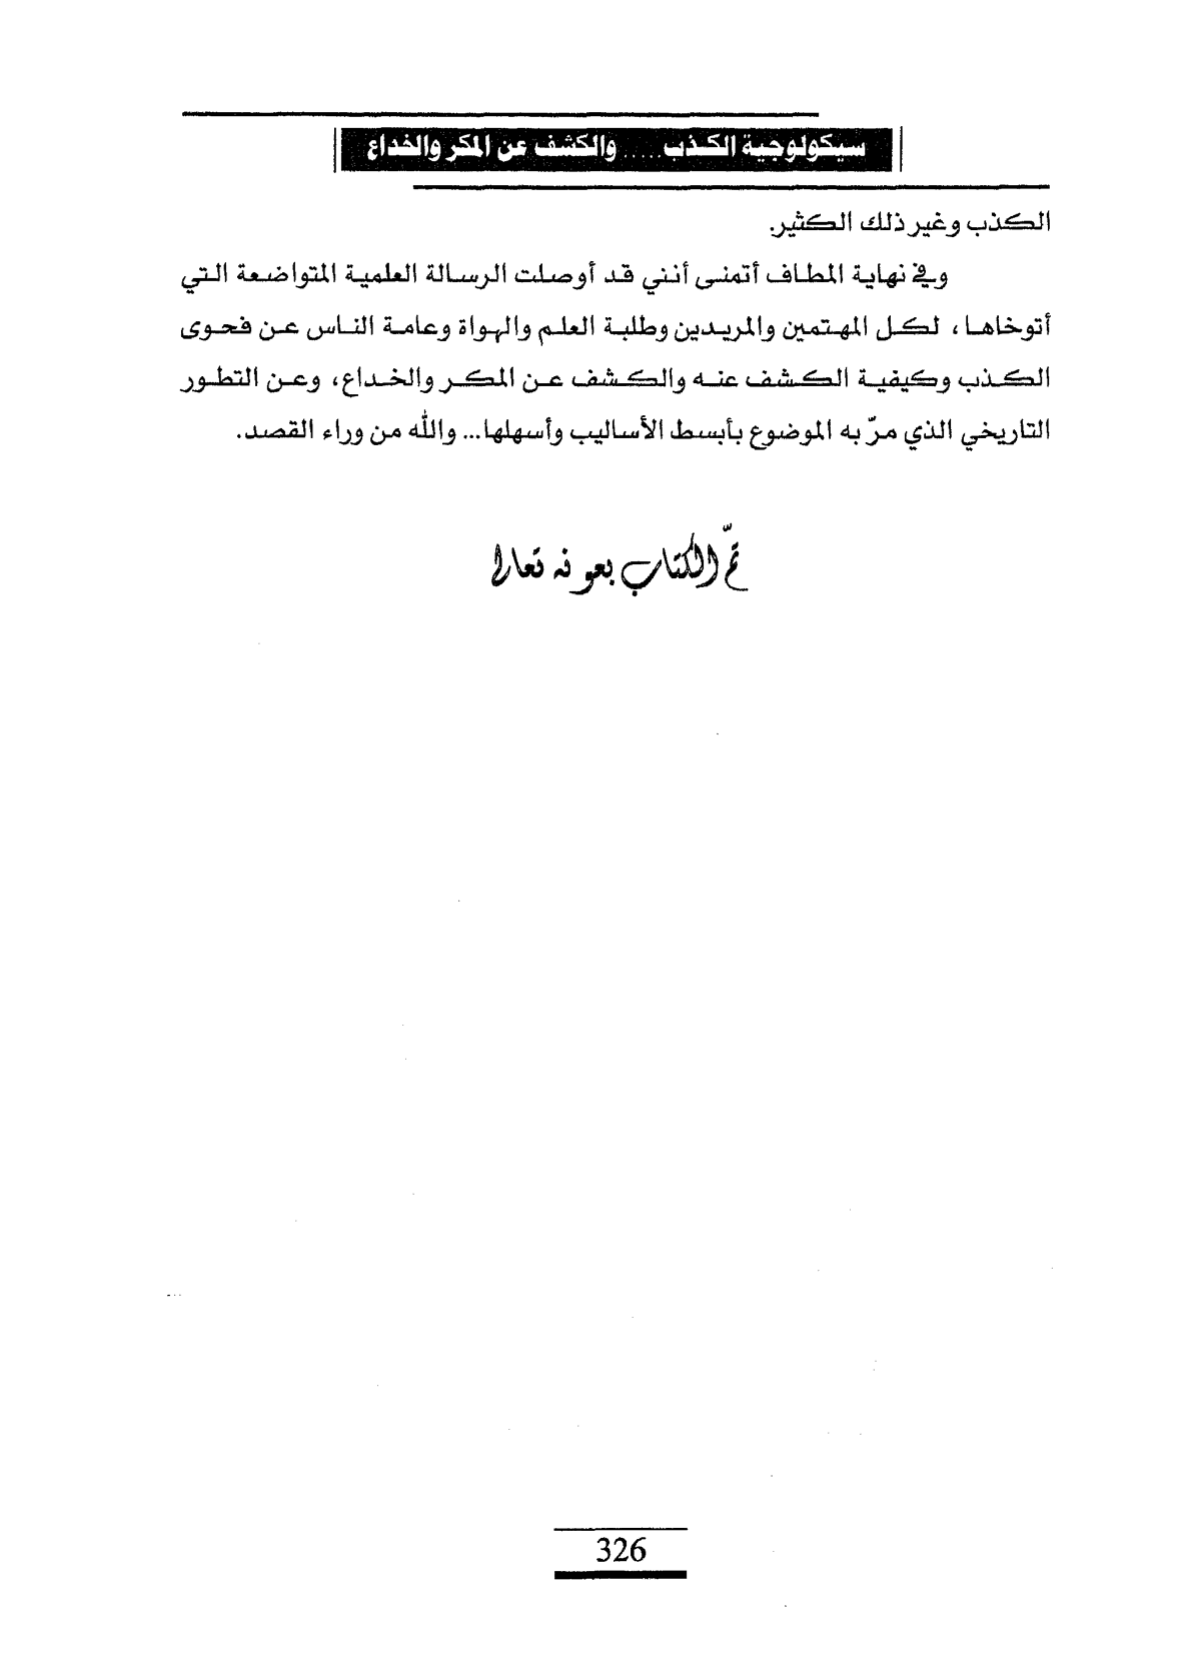 سيكولوجية الكذب ..... والكشف عن المكر والخداع
الكذب وغير ذلك الكثير.
وفي نهاية المطاف أتمنى أنني قد أوصلت الرسالة العلمية المتواضعة التي
أتوخاها، لكل المهتمين والمريدين وطلبة العلم والهواة وعامة الناس عن فحوى
الكذب وكيفية الكشف عنه والكشف عن المكر والخداع، وعن التطور
التاريخي الذي مرّ به الموضوع بأبسط الأساليب وأسهلها... والله من وراء القصد.
تمّ الكتاب بعونه تعالى
326